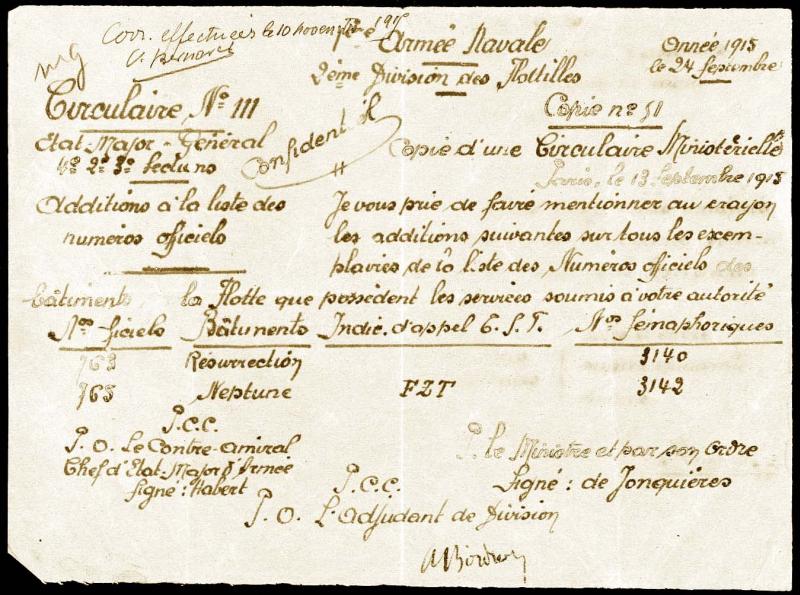 Corr. effectuées le 10 novem 1915
1ère Armée Navale
Année 1915
2ème Division des Flottilles
le 24 Septembre
Circulaire No 111
Copie no 51
Etat-Major-Général
Confidentiel
Copie d'une Circulaire Ministérielle
1o 2o 3o Sections
Paris, le 13 Septembre 1915
Additions à la liste des
numéros officiels
Je vous prie de faire mentionner au crayon
les additions suivantes sur tous les exem-
plaires de la liste des Numéros officiels des
bâtiments la Flotte que possèdent les services soumis à votre autorité
Nos ficiels Bâtiments Indic. d'appel T.S.F. Nos Sémaphoriques
763 Résurrection 3140
765 Neptune FZT 3142
P.C.C.
P.O. Le Contre-amiral
Chef d'Etat-Major d'Armée
Signé : Habert
P. le Ministre et par son Ordre
Signé : de Jonquières
P.C.C.
P.O. L'Adjudant de Division